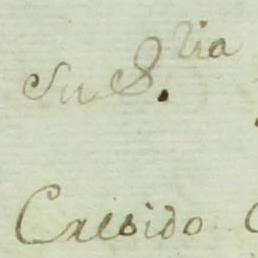 Su S.ria
Caesido